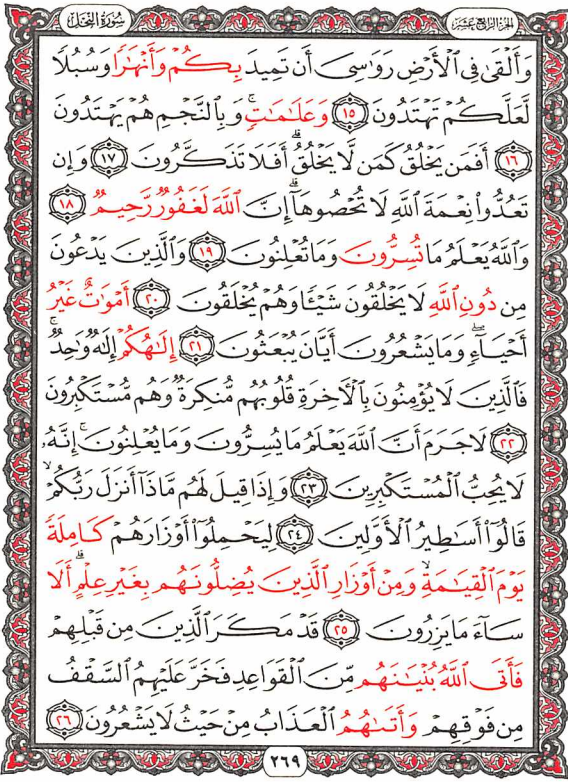 سُورَةُ النَّحْلِ الجُزْءُ الرَّابِعُ عَشَرَ
وَأَلْقَىٰ فِي ٱلْأَرْضِ رَوَٰسِيَ أَن تَمِيدَ بِكُمْ وَأَنْهَٰرًا وَسُبُلًا
لَّعَلَّكُمْ تَهْتَدُونَ ١٥ وَعَلَٰمَٰتٍۚ وَبِٱلنَّجْمِ هُمْ يَهْتَدُونَ
١٦ أَفَمَن يَخْلُقُ كَمَن لَّا يَخْلُقُۗ أَفَلَا تَذَكَّرُونَ ١٧ وَإِن
تَعُدُّوا۟ نِعْمَةَ ٱللَّهِ لَا تُحْصُوهَآۗ إِنَّ ٱللَّهَ لَغَفُورٌ رَّحِيمٌ ١٨
وَٱللَّهُ يَعْلَمُ مَا تُسِرُّونَ وَمَا تُعْلِنُونَ ١٩ وَٱلَّذِينَ يَدْعُونَ
مِن دُونِ ٱللَّهِ لَا يَخْلُقُونَ شَيْـًٔا وَهُمْ يُخْلَقُونَ ٢٠ أَمْوَٰتٌ غَيْرُ
أَحْيَآءٍۖ وَمَا يَشْعُرُونَ أَيَّانَ يُبْعَثُونَ ٢١ إِلَٰهُكُمْ إِلَٰهٌ وَٰحِدٌۚ
فَٱلَّذِينَ لَا يُؤْمِنُونَ بِٱلْـَٔاخِرَةِ قُلُوبُهُم مُّنكِرَةٌ وَهُم مُّسْتَكْبِرُونَ
٢٢ لَا جَرَمَ أَنَّ ٱللَّهَ يَعْلَمُ مَا يُسِرُّونَ وَمَا يُعْلِنُونَۚ إِنَّهُۥ
لَا يُحِبُّ ٱلْمُسْتَكْبِرِينَ ٢٣ وَإِذَا قِيلَ لَهُم مَّاذَآ أَنزَلَ رَبُّكُمْۙ
قَالُوٓا۟ أَسَٰطِيرُ ٱلْأَوَّلِينَ ٢٤ لِيَحْمِلُوٓا۟ أَوْزَارَهُمْ كَامِلَةً
يَوْمَ ٱلْقِيَٰمَةِۙ وَمِنْ أَوْزَارِ ٱلَّذِينَ يُضِلُّونَهُم بِغَيْرِ عِلْمٍۗ أَلَا
سَآءَ مَا يَزِرُونَ ٢٥ قَدْ مَكَرَ ٱلَّذِينَ مِن قَبْلِهِمْ
فَأَتَى ٱللَّهُ بُنْيَٰنَهُم مِّنَ ٱلْقَوَاعِدِ فَخَرَّ عَلَيْهِمُ ٱلسَّقْفُ
مِن فَوْقِهِمْ وَأَتَىٰهُمُ ٱلْعَذَابُ مِنْ حَيْثُ لَا يَشْعُرُونَ ٢٦
٢٦٩